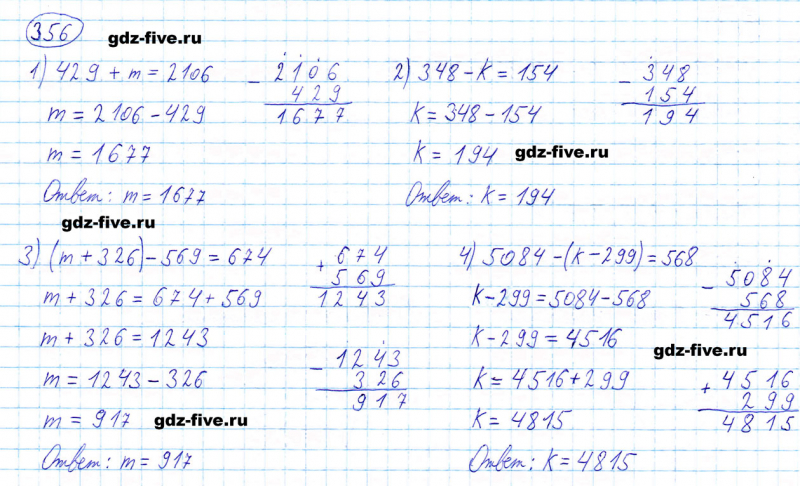 356 gdz-five.ru
1) 429 + m = 2106
m = 2106 - 429
m = 1677
Ответ: m = 1677
- 2106
429
1677
2) 348 - k = 154
k = 348 - 154
k = 194
gdz-five.ru
Ответ: k = 194
- 348
154
194
gdz-five.ru
3) (m + 326) - 569 = 674
m + 326 = 674 + 569
m + 326 = 1243
m = 1243 - 326
m = 917
gdz-five.ru
Ответ: m = 917
+ 674
569
1243
- 1243
326
917
4) 5084 - (k - 299) = 568
k - 299 = 5084 - 568
k - 299 = 4516
gdz-five.ru
k = 4516 + 299
k = 4815
Ответ: k = 4815
- 5084
568
4516
+ 4516
299
4815